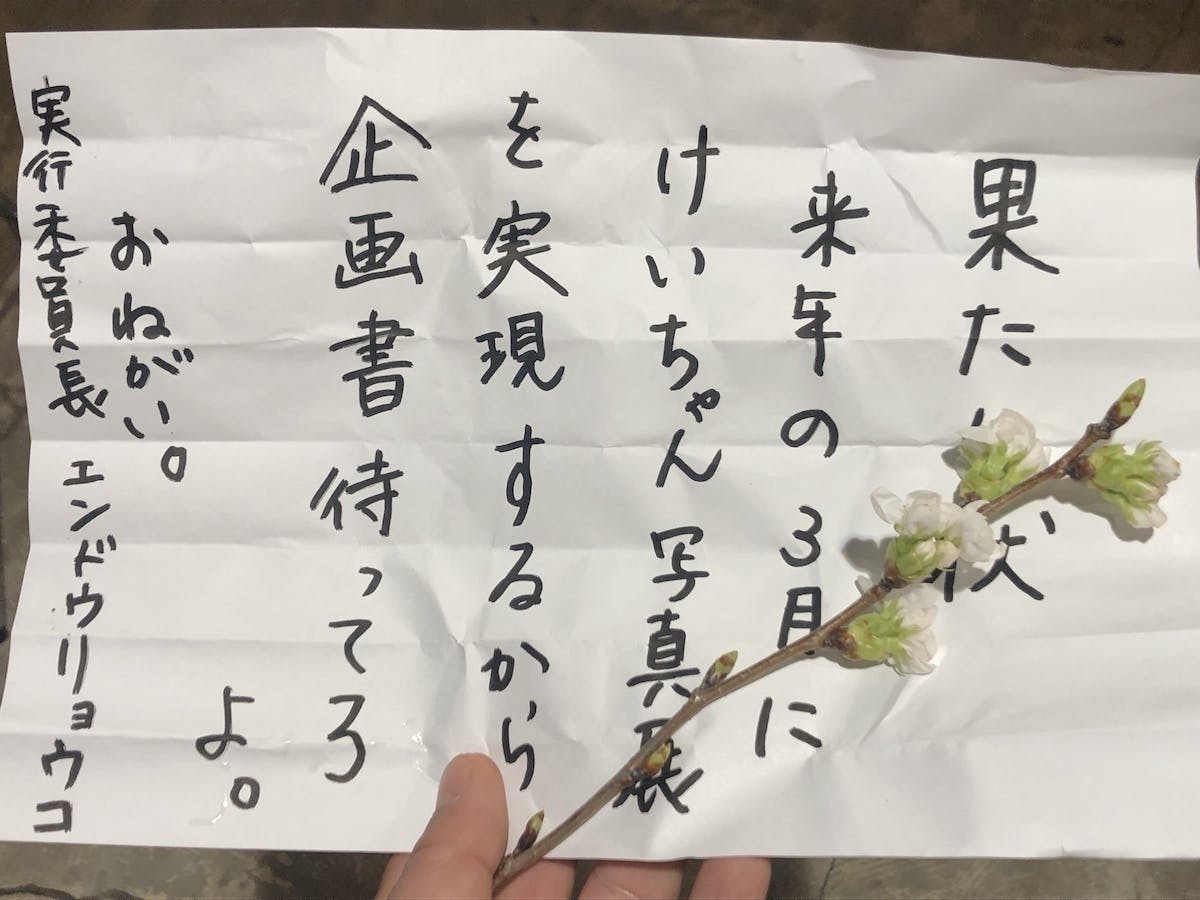 果たし状
来年の3月に
けいちゃん写真展
を実現するから
企画書待ってろ
よ。
おねがい。
実行委員長 エンドウリョウコ